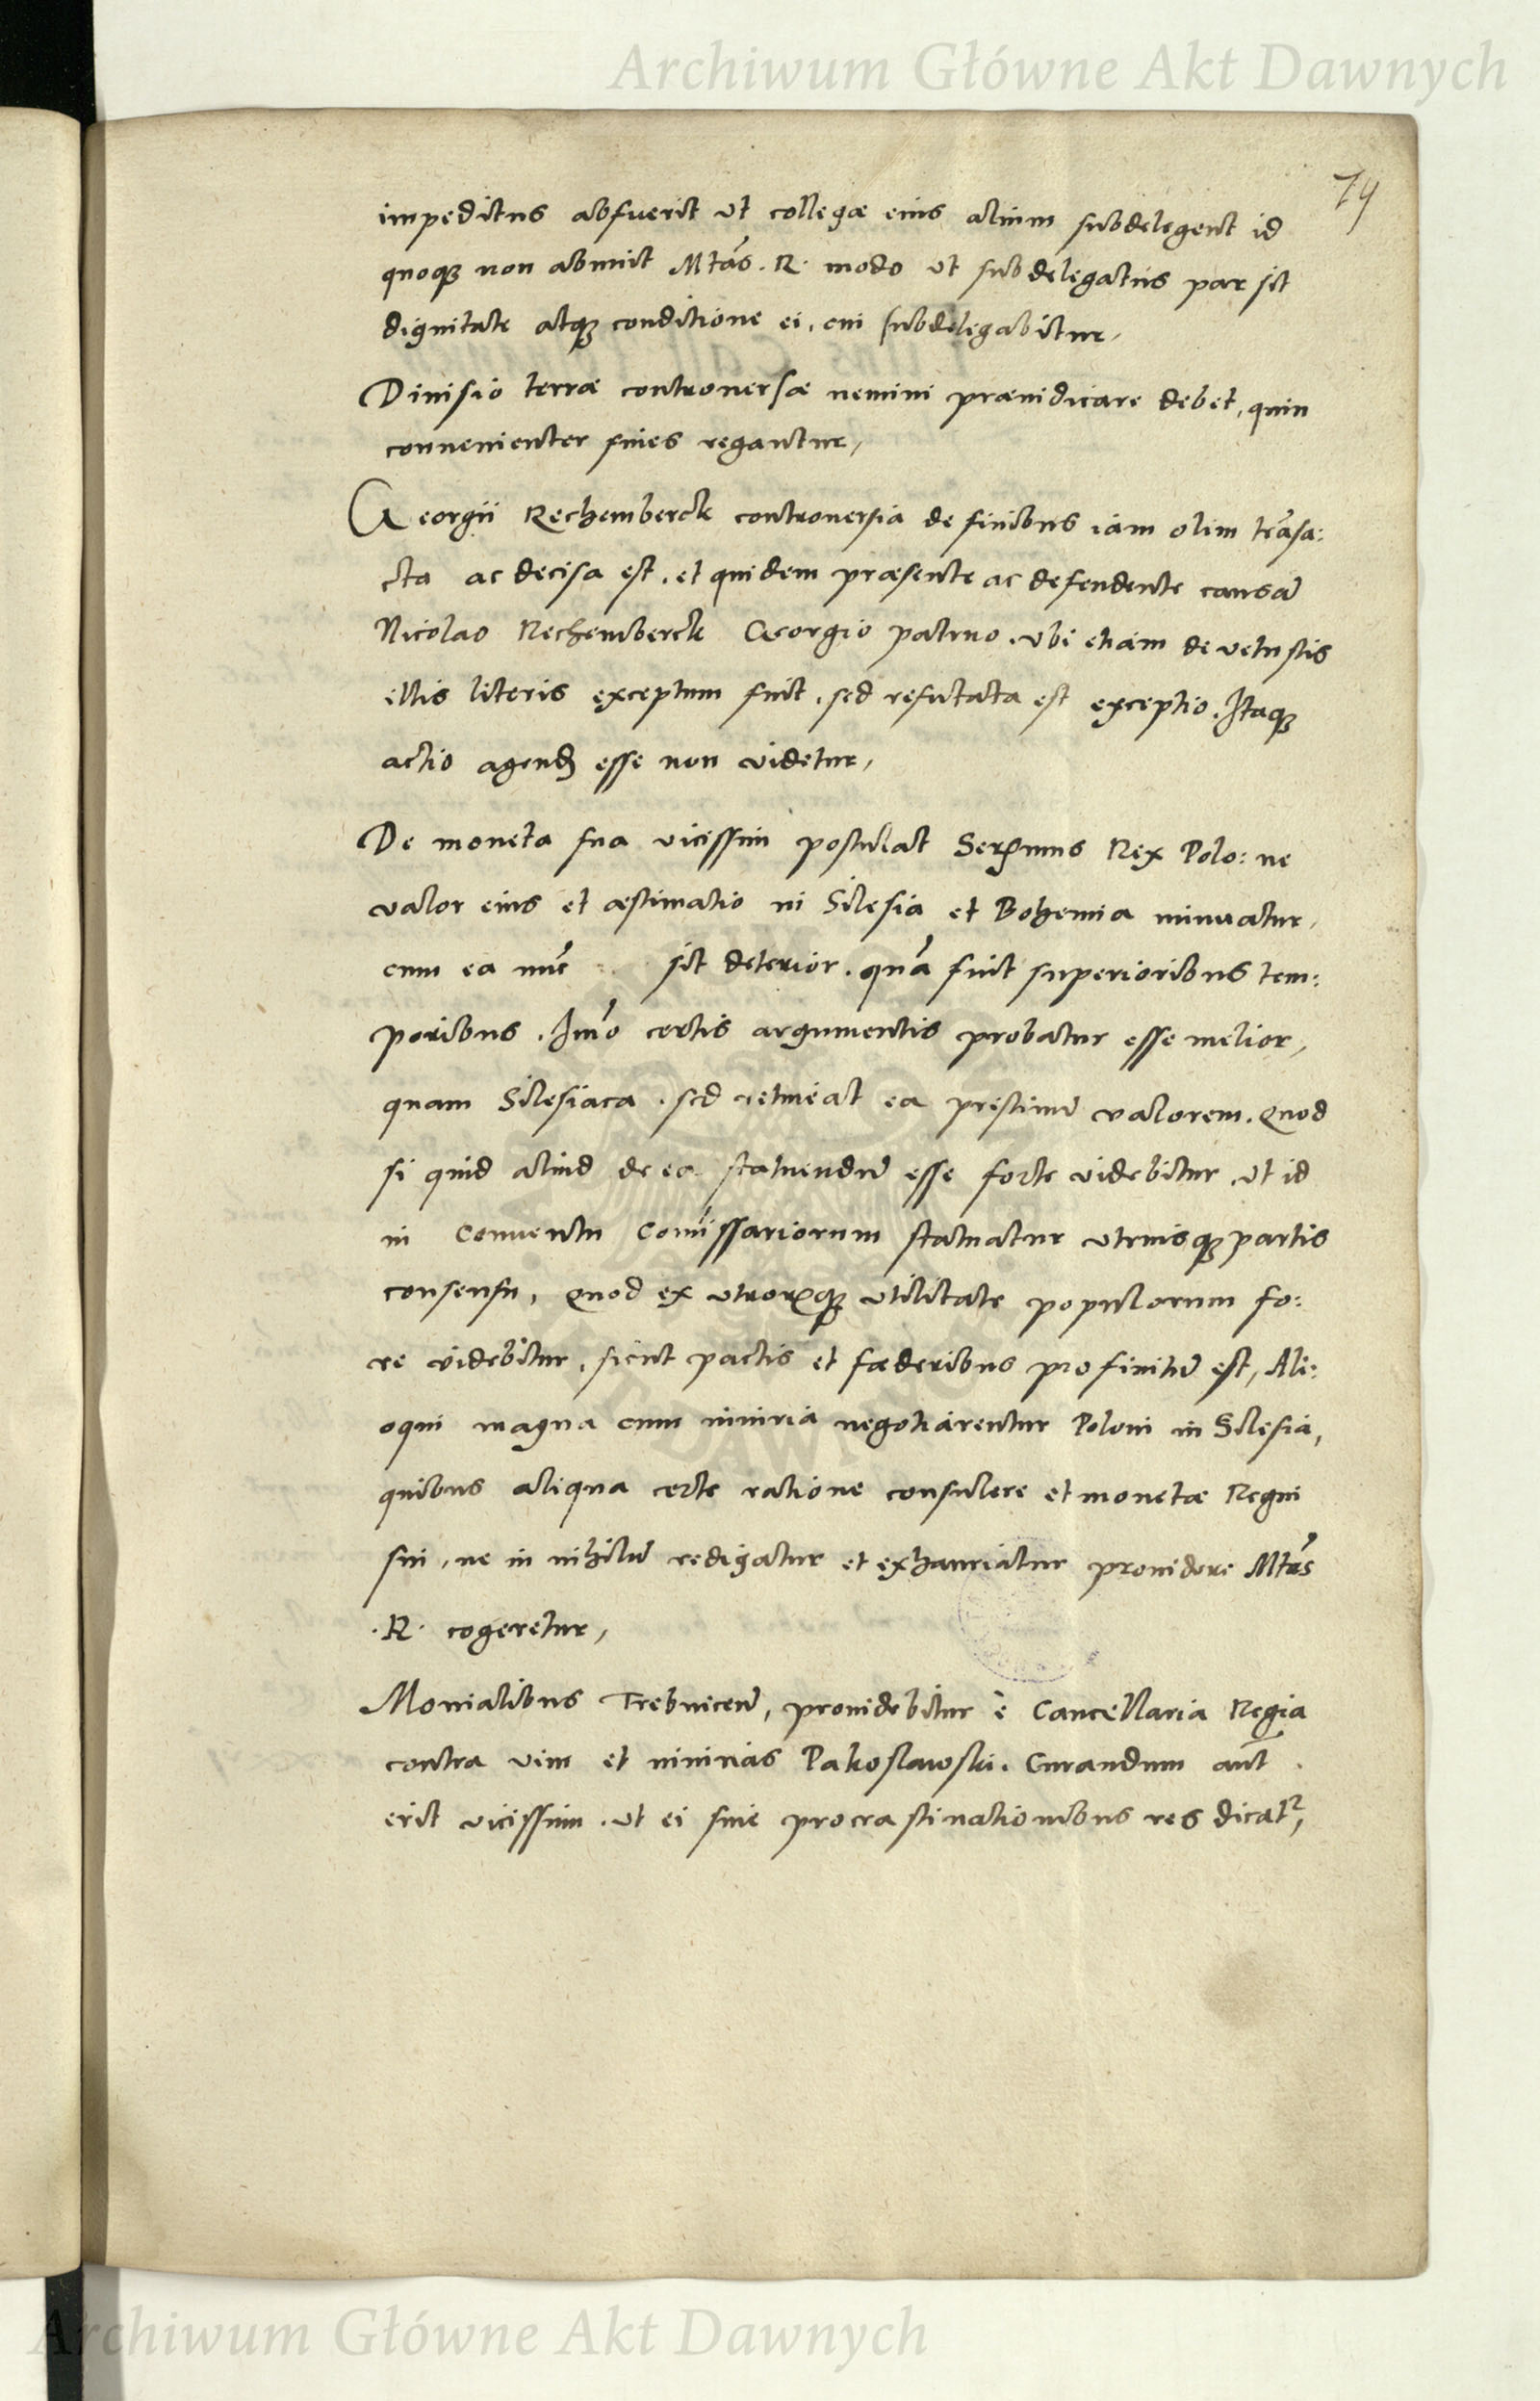 Archiwum Główne Akt Dawnych
74
impeditus abfuerit ut collegæ eius alium subdelegent id
quoq; non abnuit Mtas. R. modo ut subdelegatus par sit
dignitate atq; conditione ei, cui subdelegabitur,
Diuisio terræ controuersæ nemini præiudicare debet, quin
conuenienter fines regantur,
Georgii Rechemberck controuersia de finibus iam olim transa:
cta ac decisa est, et quidem præsente ac defendente causã
Nicolao Rechemberck Georgio patruo. ubi etiam de uetustis
illis literis exceptum fuit, sed refutata est exceptio. Itaq;
actio agend esse non uidetur,
De moneta sua uicissim postulat Sermus Rex Polo: ne
ualor eius et æstimatio in Silesia et Bohemia minuatur,
cum ea nũc sit deterior. quã fuit superioribus tem:
poribus. Imo certis argumentis probatur esse melior,
quam Silesiaca. sed retineat ea pristinũ ualorem. Quod
si quid aliud de ea statuendũ esse forte uidebitur, ut id
in Conuentu Comissariorum statuatur utriusq; partis
consensu, Quod ex utrorq; utilitate populorum fo:
re uidebitur, sicut pactis et fœderibus profinitũ est, Ali:
oqui magna cum iniuria negotiarentur Poloni in Silesia,
quibus aliqua certe ratione consulere et monetæ Regni
sui, ne in nihilũ redigatur et exhauriatur prouidere Mtas
.R. cogeretur,
Monialibus Trebnicen̄, prouidebitur è Cancellaria Regia
contra uim et iniurias Pakoslawski. Curandum aut̃
erit uicissim. ut ei sine procrastinationibus res dicat̃,
Archiwum Główne Akt Dawnych